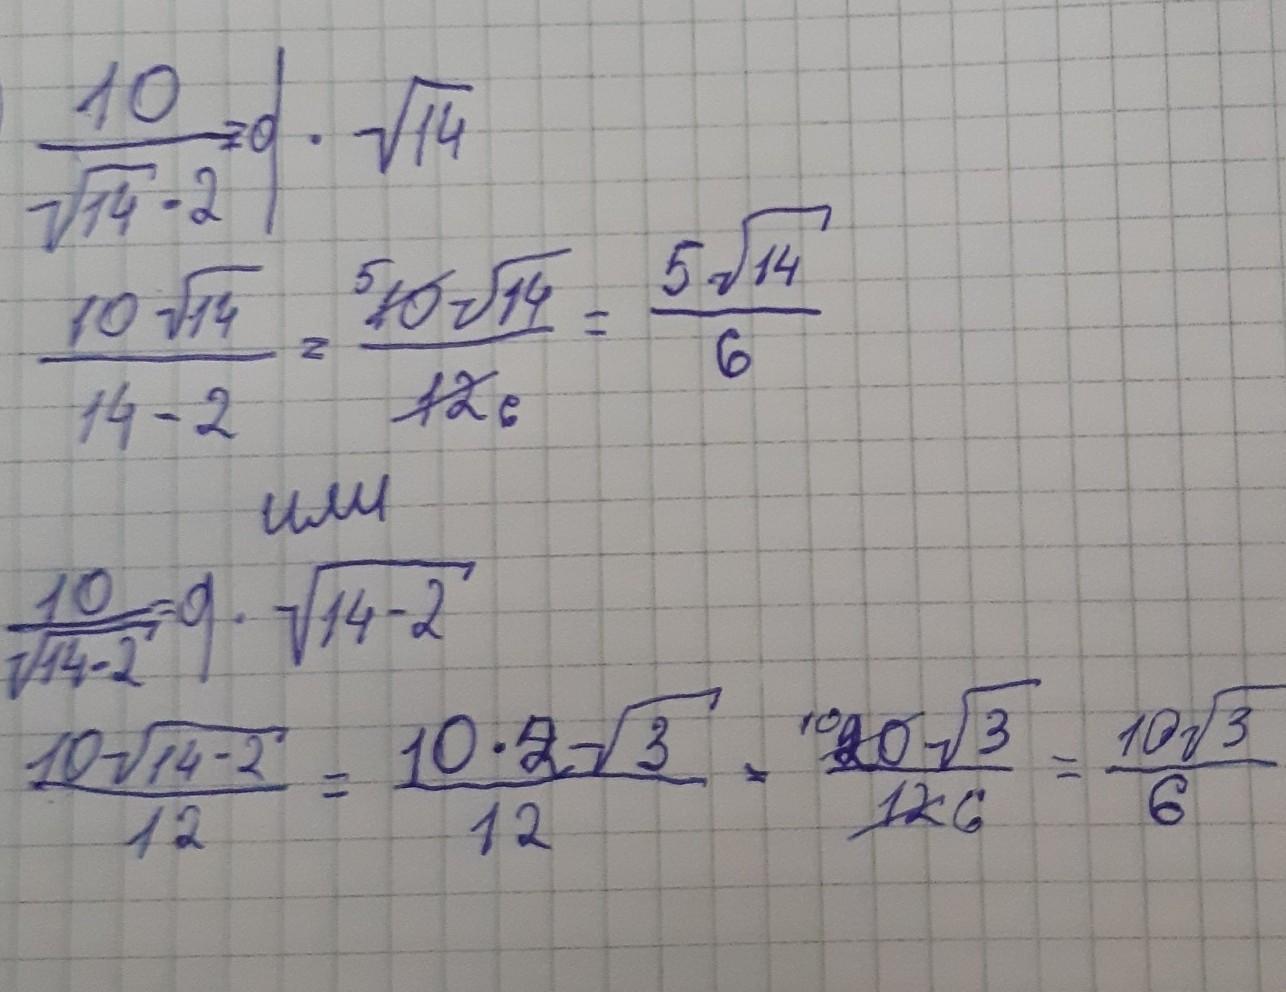 10/(√14 - 2) = q · √14
10√14/(14 - 2) = 5 10√14/12 6 = 5√14/6
или
10/√(14-2) = q · √(14-2)
10√(14-2)/12 = 10·2√3/12 = 10 20√3/12 6 = 10√3/6